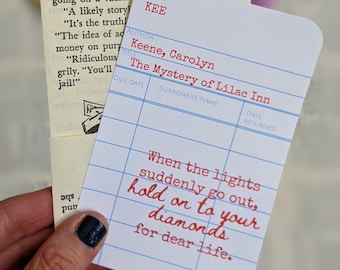 "A likely story
"It's the truth
"The idea of ac
money on purp
"Ridiculous
grily. "You'll
jail!"
KEE
AUTHOR
Keene, Carolyn
The Mystery of Lilac Inn
DUE DATE BORROWER'S NAME DATE RETURNED
When the lights
suddenly go out,
hold on to your
diamonds
for dear life.
she